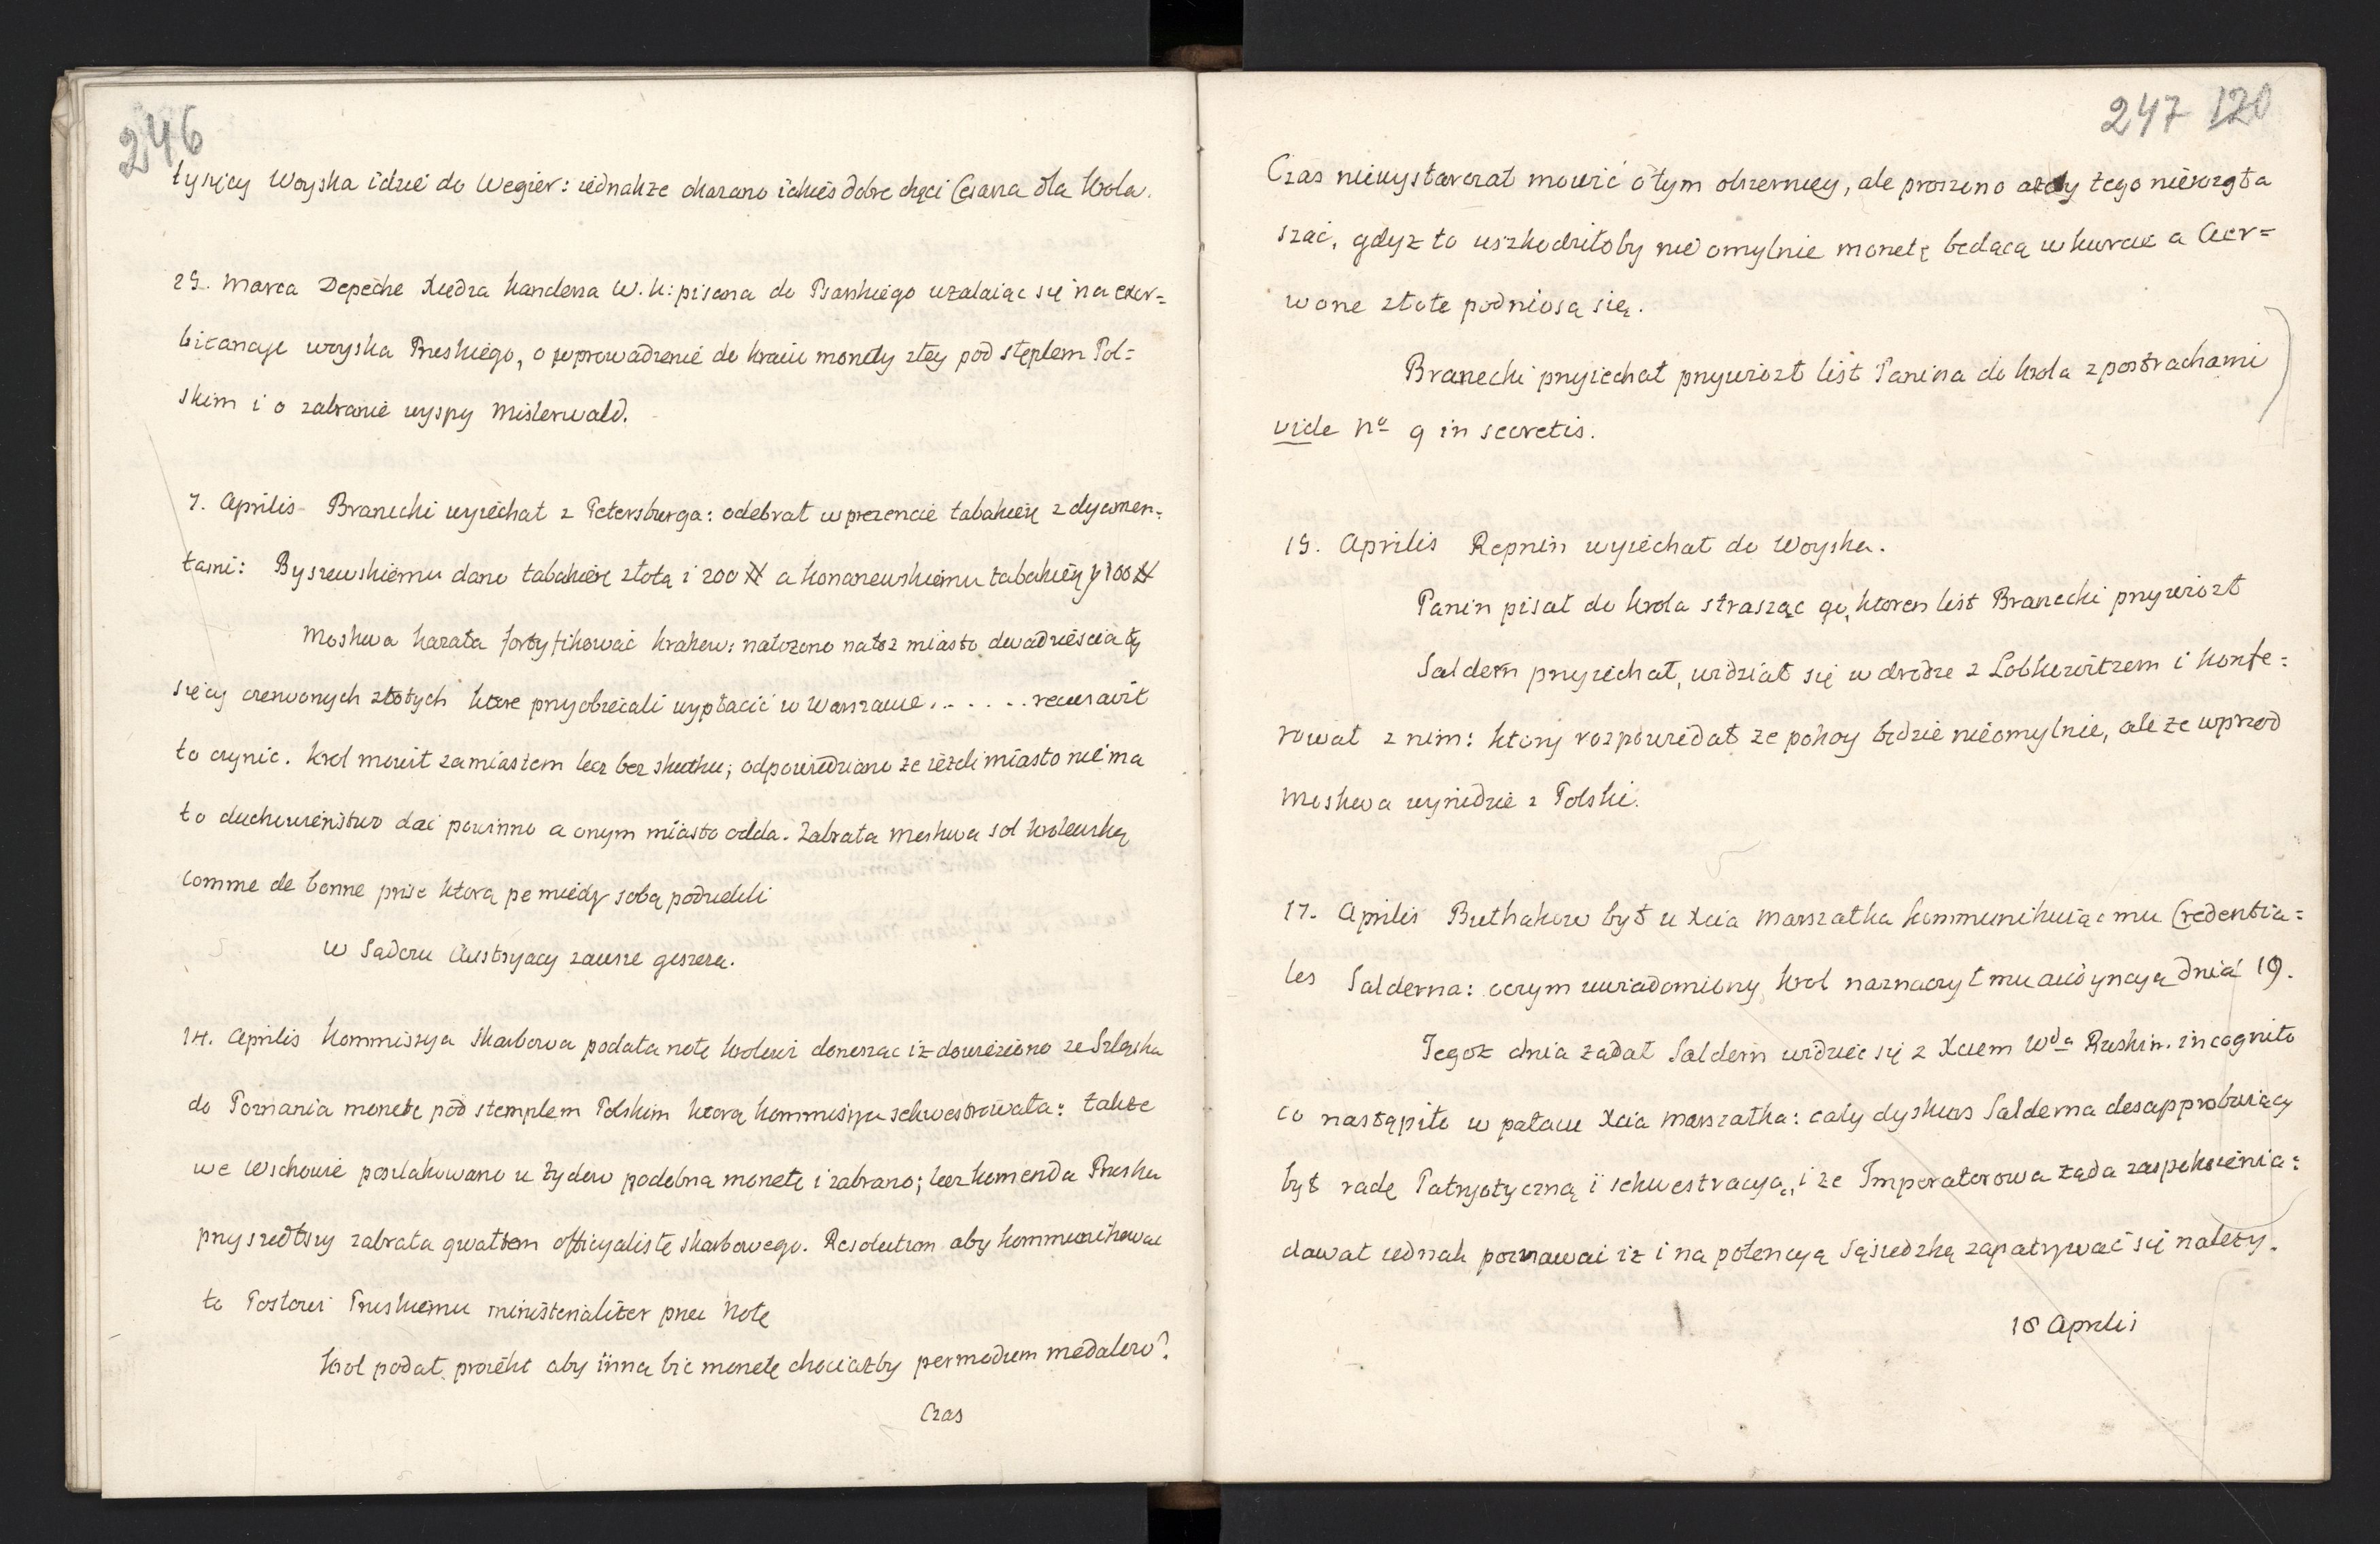 246
tysięcy Woyska idzie do Węgier: iednakze okazano iakieś dobre chęci Cesarza dla Krola.
29. Marca Depeche Xiędza Kanclerza W. K: pisana do Psarskiego uzalaiąc się na exor=
bitancye woyska Pruskiego, o wprowadzenie do kraiu monety złey pod stęplem Pol=
skim i o zabranie wyspy Misterwald.
7. Aprilis Branecki wyiechał z Petersburga: odebrał w prezencie tabakierę z dyamen=
tami: Byszewskiemu dano tabakierę złotą i 200 # a Konarzewskiemu tabakierę y 100 #
Moskwa kazała fortyfikować Krakow: nałozono na toz miasto dwadzieścia ty
sięcy czerwonych złotych ktore przyobiecali wypłacić w Warszawie . . . . . . recusavit
to czynic. Krol mowił za miastem lecz bez skutku; odpowiedziano ze iezeli miasto nie ma
to duchowieństwo dać powinno a onym miasto odda. Zabrała Moskwa sol krolewską
comme de bonne prise ktorą po miedzy sobą podzielili
w Sączu Austryacy zawsze goszczą.
14. Aprilis Kommissya Skarbowa podała notę Krolowi donosząc iz dowieziono ze Szląska
do Poznania monetę pod stemplem Polskim ktorą kommissya sekwestrowała: także
we Wschowie poszlakowano u żydow podobną monetę i zabrano; lecz komenda Pruska
przyszedłszy zabrała gwałtem officyalistę skarbowego. Resolutum aby kommunikować
to Posłowi Pruskiemu ministerialiter przez Notę
Krol podał proiekt aby inną bic monetę chociażby per modum medalow?
Czas
247 120
Czas niewystarczał mowić o tym obszerniey, ale proszono azeby tego nierozgła
szać, gdyz to uszkodziłoby nieomylnie monetę będącą w kursie a Czer=
wone złote podniosą się.
Branecki przyiechał przywiozł list Panina do Krola z postrachami
vide nº 9 in secretis.
15. Aprilis Repnin wyiechał do Woyska.
Panin pisał do Krola strasząc go, ktoren list Branecki przywiozł
Saldern przyiechał, widział się w drodze z Lobkowitzem i konfe=
rował z nim: ktory rozpowiedał ze pokoy będzie nieomylnie, ale ze wprzod
Moskwa wynidzie z Polski.
17. Aprilis Buthakow był u Xcia Marszałka kommunikuiąc mu Credentia=
les Salderna: o czym uwiadomiony Krol naznaczył mu audyncyą dnia 19.
Tegoz dnia żądał Saldern widzieć się z Xciem Wdą Ruskim. incognito
co nastąpiło w pałacu Xcia Marszałka: cały dyskurs Salderna desapprobuiący
był radę Patryotyczną i sekwestracyą, i ze Imperatorowa żąda zaspokoienia:
dawał iednak poznawać iz i na potencyą sąsiedzką zapatrywać się należy.
18 Aprilis